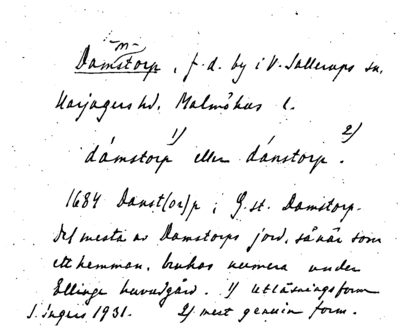 Damstorp, f. d. by i V. Sallerups sn,
Harjagers hd, Malmöhus l.
dámstorp 1) eller dánstorp 2).
1684 Danst(or)p i J. st. Damstorp.
Det mesta av Damstorps jord, såväl som
ett hemman, brukas numera under
Ellinge huvudgård. 1) Utläsningsform
S. Ingers 1931. 2) mest genuin form.